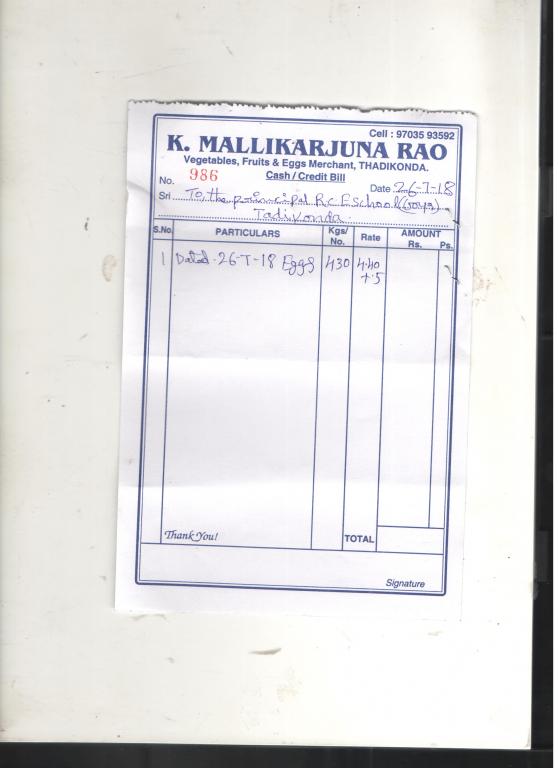 Cell : 97035 93592
K. MALLIKARJUNA RAO
Vegetables, Fruits & Eggs Merchant, THADIKONDA.
Cash / Credit Bill
No. 986
Date 26-7-18
Sri To, the principal R.C.E school (Boys)
Tadikonda.
S.No. PARTICULARS Kgs/ No. Rate AMOUNT Rs. Ps.
1 Dated. 26-7-18 Eggs 430 4.40
+.5
Thank You! TOTAL
Signature